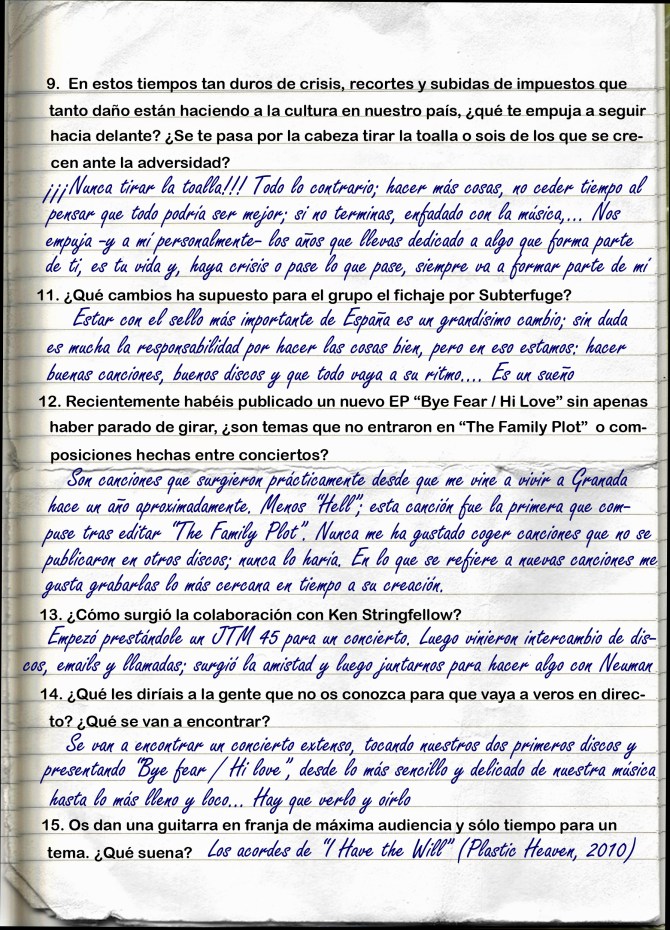 9. En estos tiempos tan duros de crisis, recortes y subidas de impuestos que
tanto daño están haciendo a la cultura en nuestro país, ¿qué te empuja a seguir
hacia delante? ¿Se te pasa por la cabeza tirar la toalla o sois de los que se cre-
cen ante la adversidad?
¡¡¡Nunca tirar la toalla!!! Todo lo contrario; hacer más cosas, no ceder tiempo al
pensar que todo podría ser mejor; si no terminas, enfadado con la música,... Nos
empuja -y a mí personalmente- los años que llevas dedicado a algo que forma parte
de ti, es tu vida y, haya crisis o pase lo que pase, siempre va a formar parte de mí
11. ¿Qué cambios ha supuesto para el grupo el fichaje por Subterfuge?
Estar con el sello más importante de España es un grandísimo cambio; sin duda
es mucha la responsabilidad por hacer las cosas bien, pero en eso estamos: hacer
buenas canciones, buenos discos y que todo vaya a su ritmo.... Es un sueño
12. Recientemente habéis publicado un nuevo EP “Bye Fear / Hi Love” sin apenas
haber parado de girar, ¿son temas que no entraron en “The Family Plot” o com-
posiciones hechas entre conciertos?
Son canciones que surgieron prácticamente desde que me vine a vivir a Granada
hace un año aproximadamente. Menos “Hell”; esta canción fue la primera que com-
puse tras editar “The Family Plot”. Nunca me ha gustado coger canciones que no se
publicaron en otros discos; nunca lo haría. En lo que se refiere a nuevas canciones me
gusta grabarlas lo más cercana en tiempo a su creación.
13. ¿Cómo surgió la colaboración con Ken Stringfellow?
Empezó prestándole un JTM 45 para un concierto. Luego vinieron intercambio de dis-
cos, emails y llamadas; surgió la amistad y luego juntarnos para hacer algo con Neuman
14. ¿Qué les diríais a la gente que no os conozca para que vaya a veros en direc-
to? ¿Qué se van a encontrar?
Se van a encontrar un concierto extenso, tocando nuestros dos primeros discos y
presentando “Bye fear / Hi love”, desde lo más sencillo y delicado de nuestra música
hasta lo más lleno y loco... Hay que verlo y oírlo
15. Os dan una guitarra en franja de máxima audiencia y sólo tiempo para un
tema. ¿Qué suena? Los acordes de “I Have the Will” (Plastic Heaven, 2010)